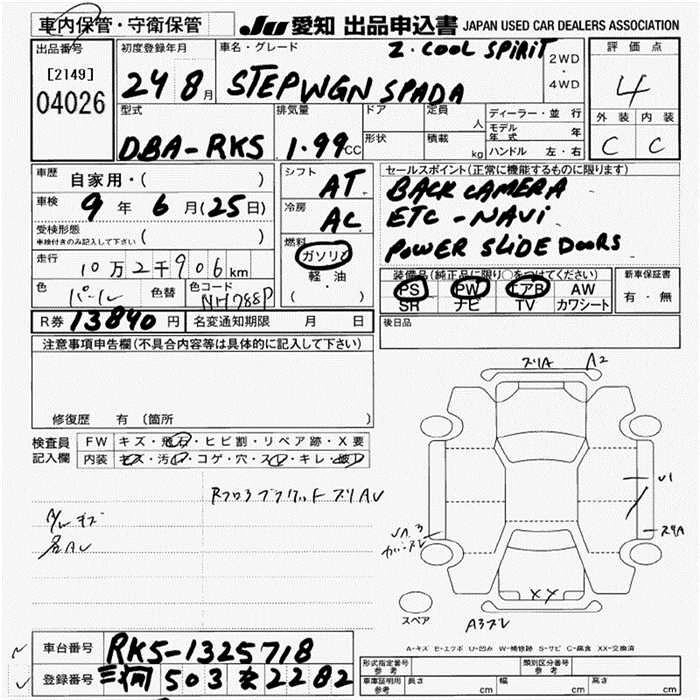 車内保管・守衛保管 JU 愛知 出品申込書 JAPAN USED CAR DEALERS ASSOCIATION
出品番号 初度登録年月 車名・グレード Z. COOL SPIRIT 2WD・4WD 評価点
[2149] 24 8月 STEPWGN SPADA 4
04026 型式 排気量 ドア 定員 人 ディーラー・並行 外装 内装
DBA-RK5 1.99CC 形状 積載 kg モデル年式 年 C C
ハンドル 左・右
車歴 自家用・( ) シフト AT セールスポイント(正常に機能するものに限ります)
車検 9年 6月(25日) 冷房 AC BACK CAMERA
受検形態 ( ) ETC - NAVi
車検付きのみ記入して下さい 燃料 ガソリン POWER SLIDE DOORS
走行 10万2千906km 軽・油 装備品(純正品に限り○をつけてください) 新車保証書
色 パール 色替 色コード NH788P ( ・ ) PS PW エアB AW 有・無
SR ナビ TV カワシート
R券 13840円 名変通知期限 月 日 後日品
注意事項申告欄(不具合内容等は具体的に記入して下さい)
ズリA A2
修復歴 有 (箇所 )
検査員 FW キズ・飛石・ヒビ割・リペア跡・X要
記入欄 内装 キズ・汚レ・コゲ・穴・スレ・キレ・破レ
A/W キズ
各AU
XX
スペア
A-キズ E-エクボ U-凹み W-補修跡 S-サビ C-腐食 XX-交換済
車台番号 RK5-1325718
登録番号 三河 503 2282
形式指定番号 参考 類別区分番号 参考
車庫証明用 参考 長さ cm 幅 cm 高さ cm